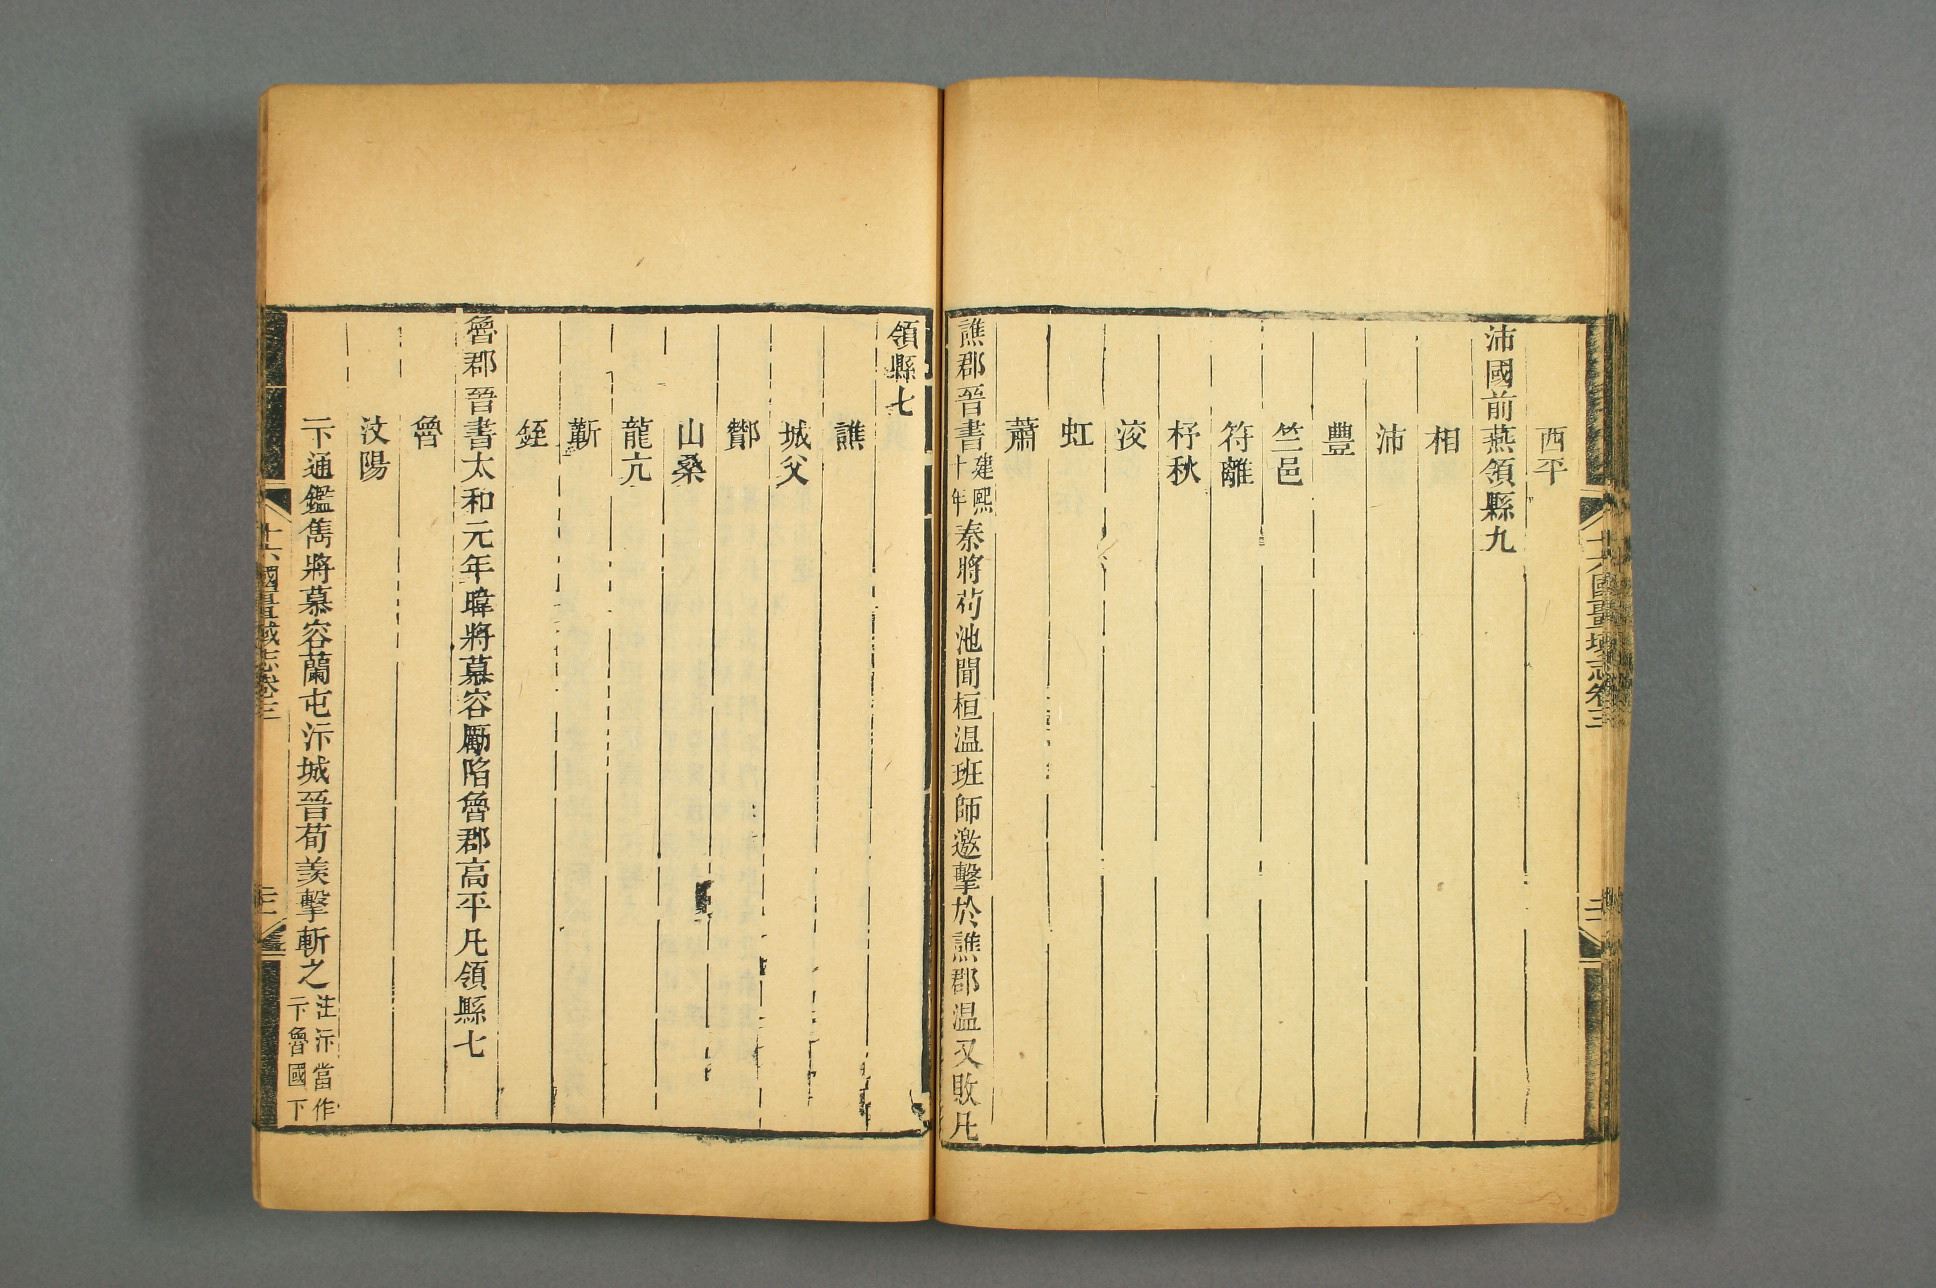 西平
沛國前燕領縣九
相
沛
豐
竺邑
符離
杼秋
洨
虹
蕭
譙郡晉書建熙十年秦將苟池聞桓温班師邀擊於譙郡温又敗凡
領縣七
譙
城父
酇
山桑
龍亢
蘄
銍
魯郡晉書太和元年暐將慕容厲陷魯郡高平凡領縣七
魯
汶陽
卞通鑑雋將慕容蘭屯汴城晉荀羨擊斬之注汴當作卞魯國下
十六國疆域志卷三